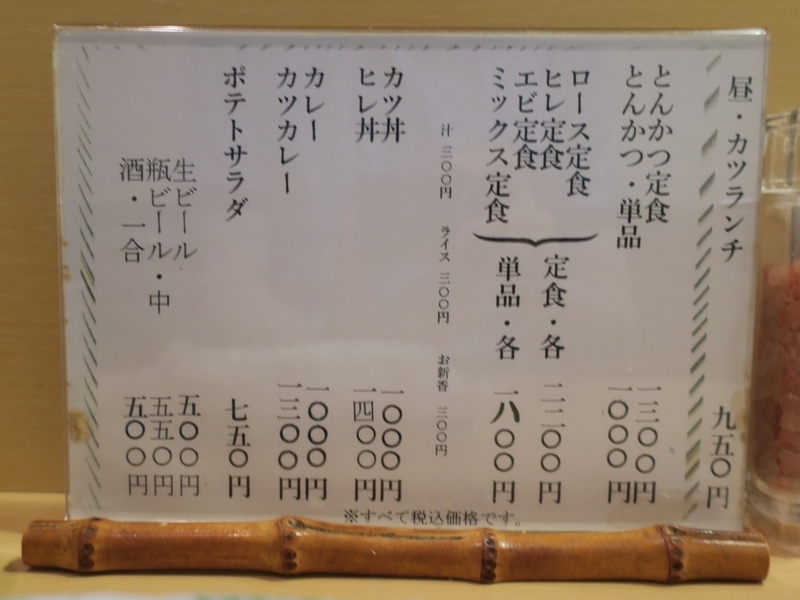 昼・カツランチ 九五〇円
とんかつ定食 一三〇〇円
とんかつ・単品 一〇〇〇円
ロース定食
ヒレ定食
エビ定食
ミックス定食
定食・各 二二〇〇円
単品・各 一八〇〇円
汁 三〇〇円 ライス 三〇〇円 お新香 三〇〇円
カツ丼 一〇〇〇円
ヒレ丼 一四〇〇円
カレー 一〇〇〇円
カツカレー 一三〇〇円
ポテトサラダ 七五〇円
生ビール 五〇〇円
瓶ビール・中 五五〇円
酒・一合 五〇〇円
※すべて税込価格です。